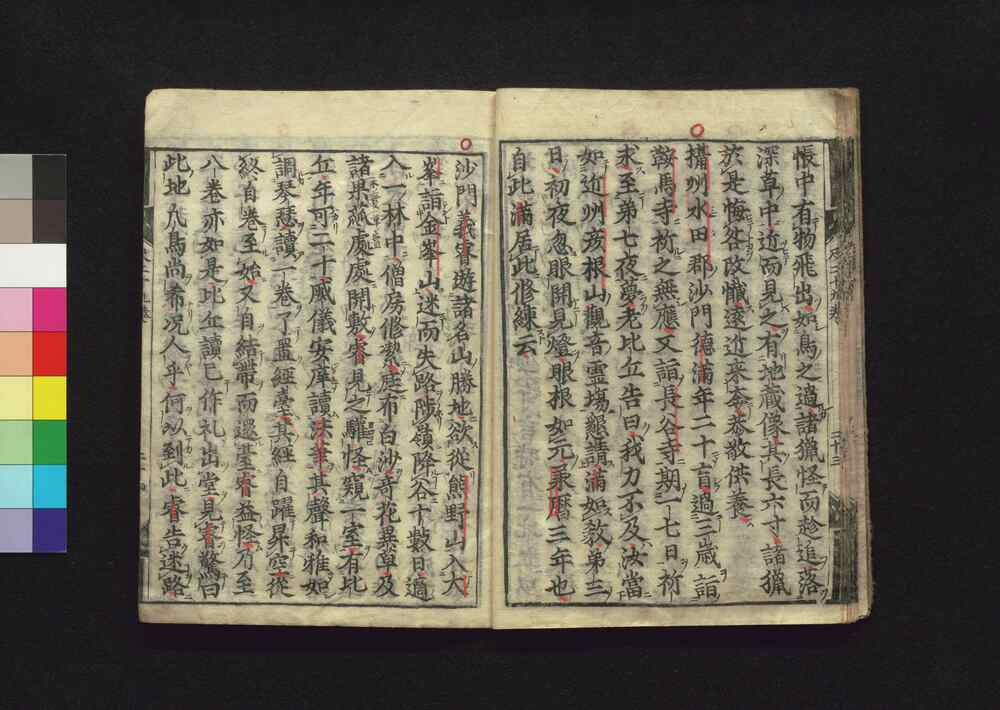 悵中有物飛出如鳥之過諸獵怪而趁追落
深草中近而見之有地蔵像其長六寸諸獵
於是悔咎改懺遠近来会恭敬供養
攝州水田郡沙門德滿年二十盲過三歳詣
鞍馬寺祈之無應又詣長谷寺期一七日祈
求至第七夜夢老比丘告曰我力不及汝當
如近州彦根山觀音靈場懇請滿如教第三
日初夜忽眼開見燈眼根如元兼曆三年也
自此滿居此修練云
沙門義睿遊諸名山勝地欲從熊野山入大
峯詣金峯山迷而失路陟嶺降谷十數日適
入一林中僧房修潔庭布白沙奇花異草及
諸果蓏處處開敷睿見之驩怪窺一室有比
丘年可二十威儀安庠讀法華其聲和雅如
調琴瑟讀一卷了置經臺其經自躍昇空從
終自卷至始又自結帶而還臺睿益怪乃至
八卷亦如是比丘讀已作礼出堂見睿驚曰
此地凢鳥尚希况人乎何以到此睿告迷路